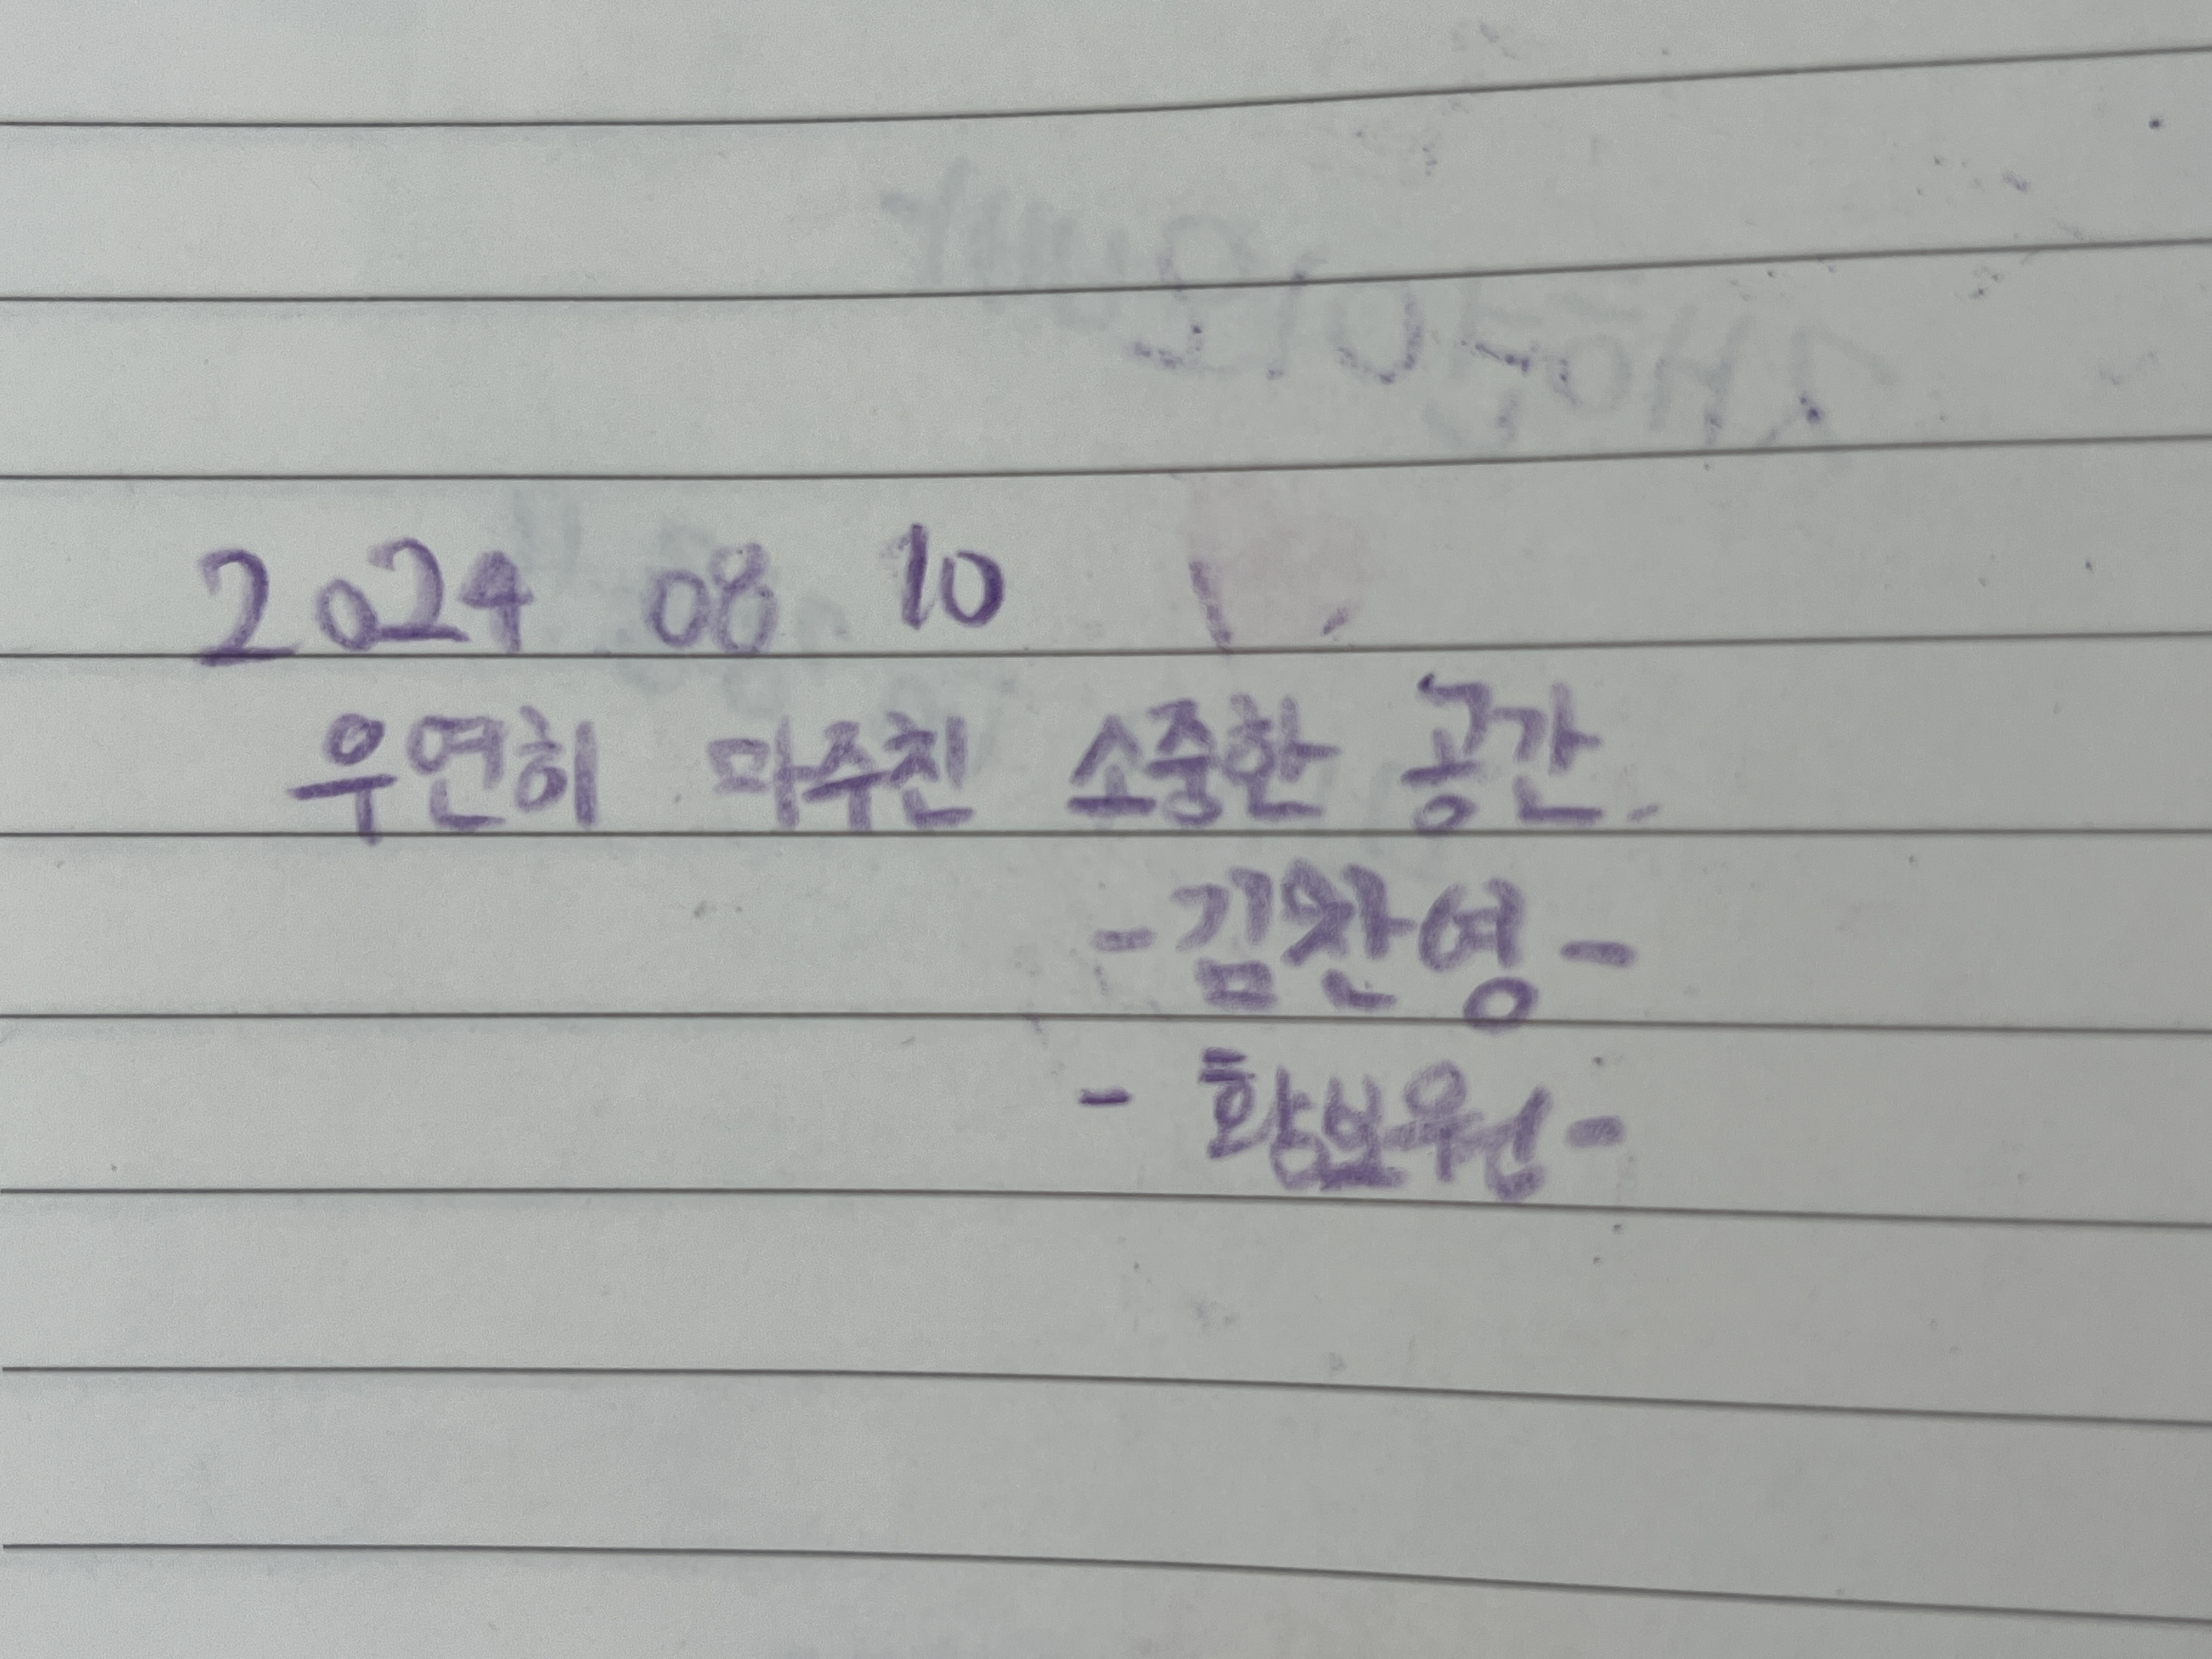 2024 08 10
우연히 마주친 소중한 공간.
-김찬영-
- 황보우성-